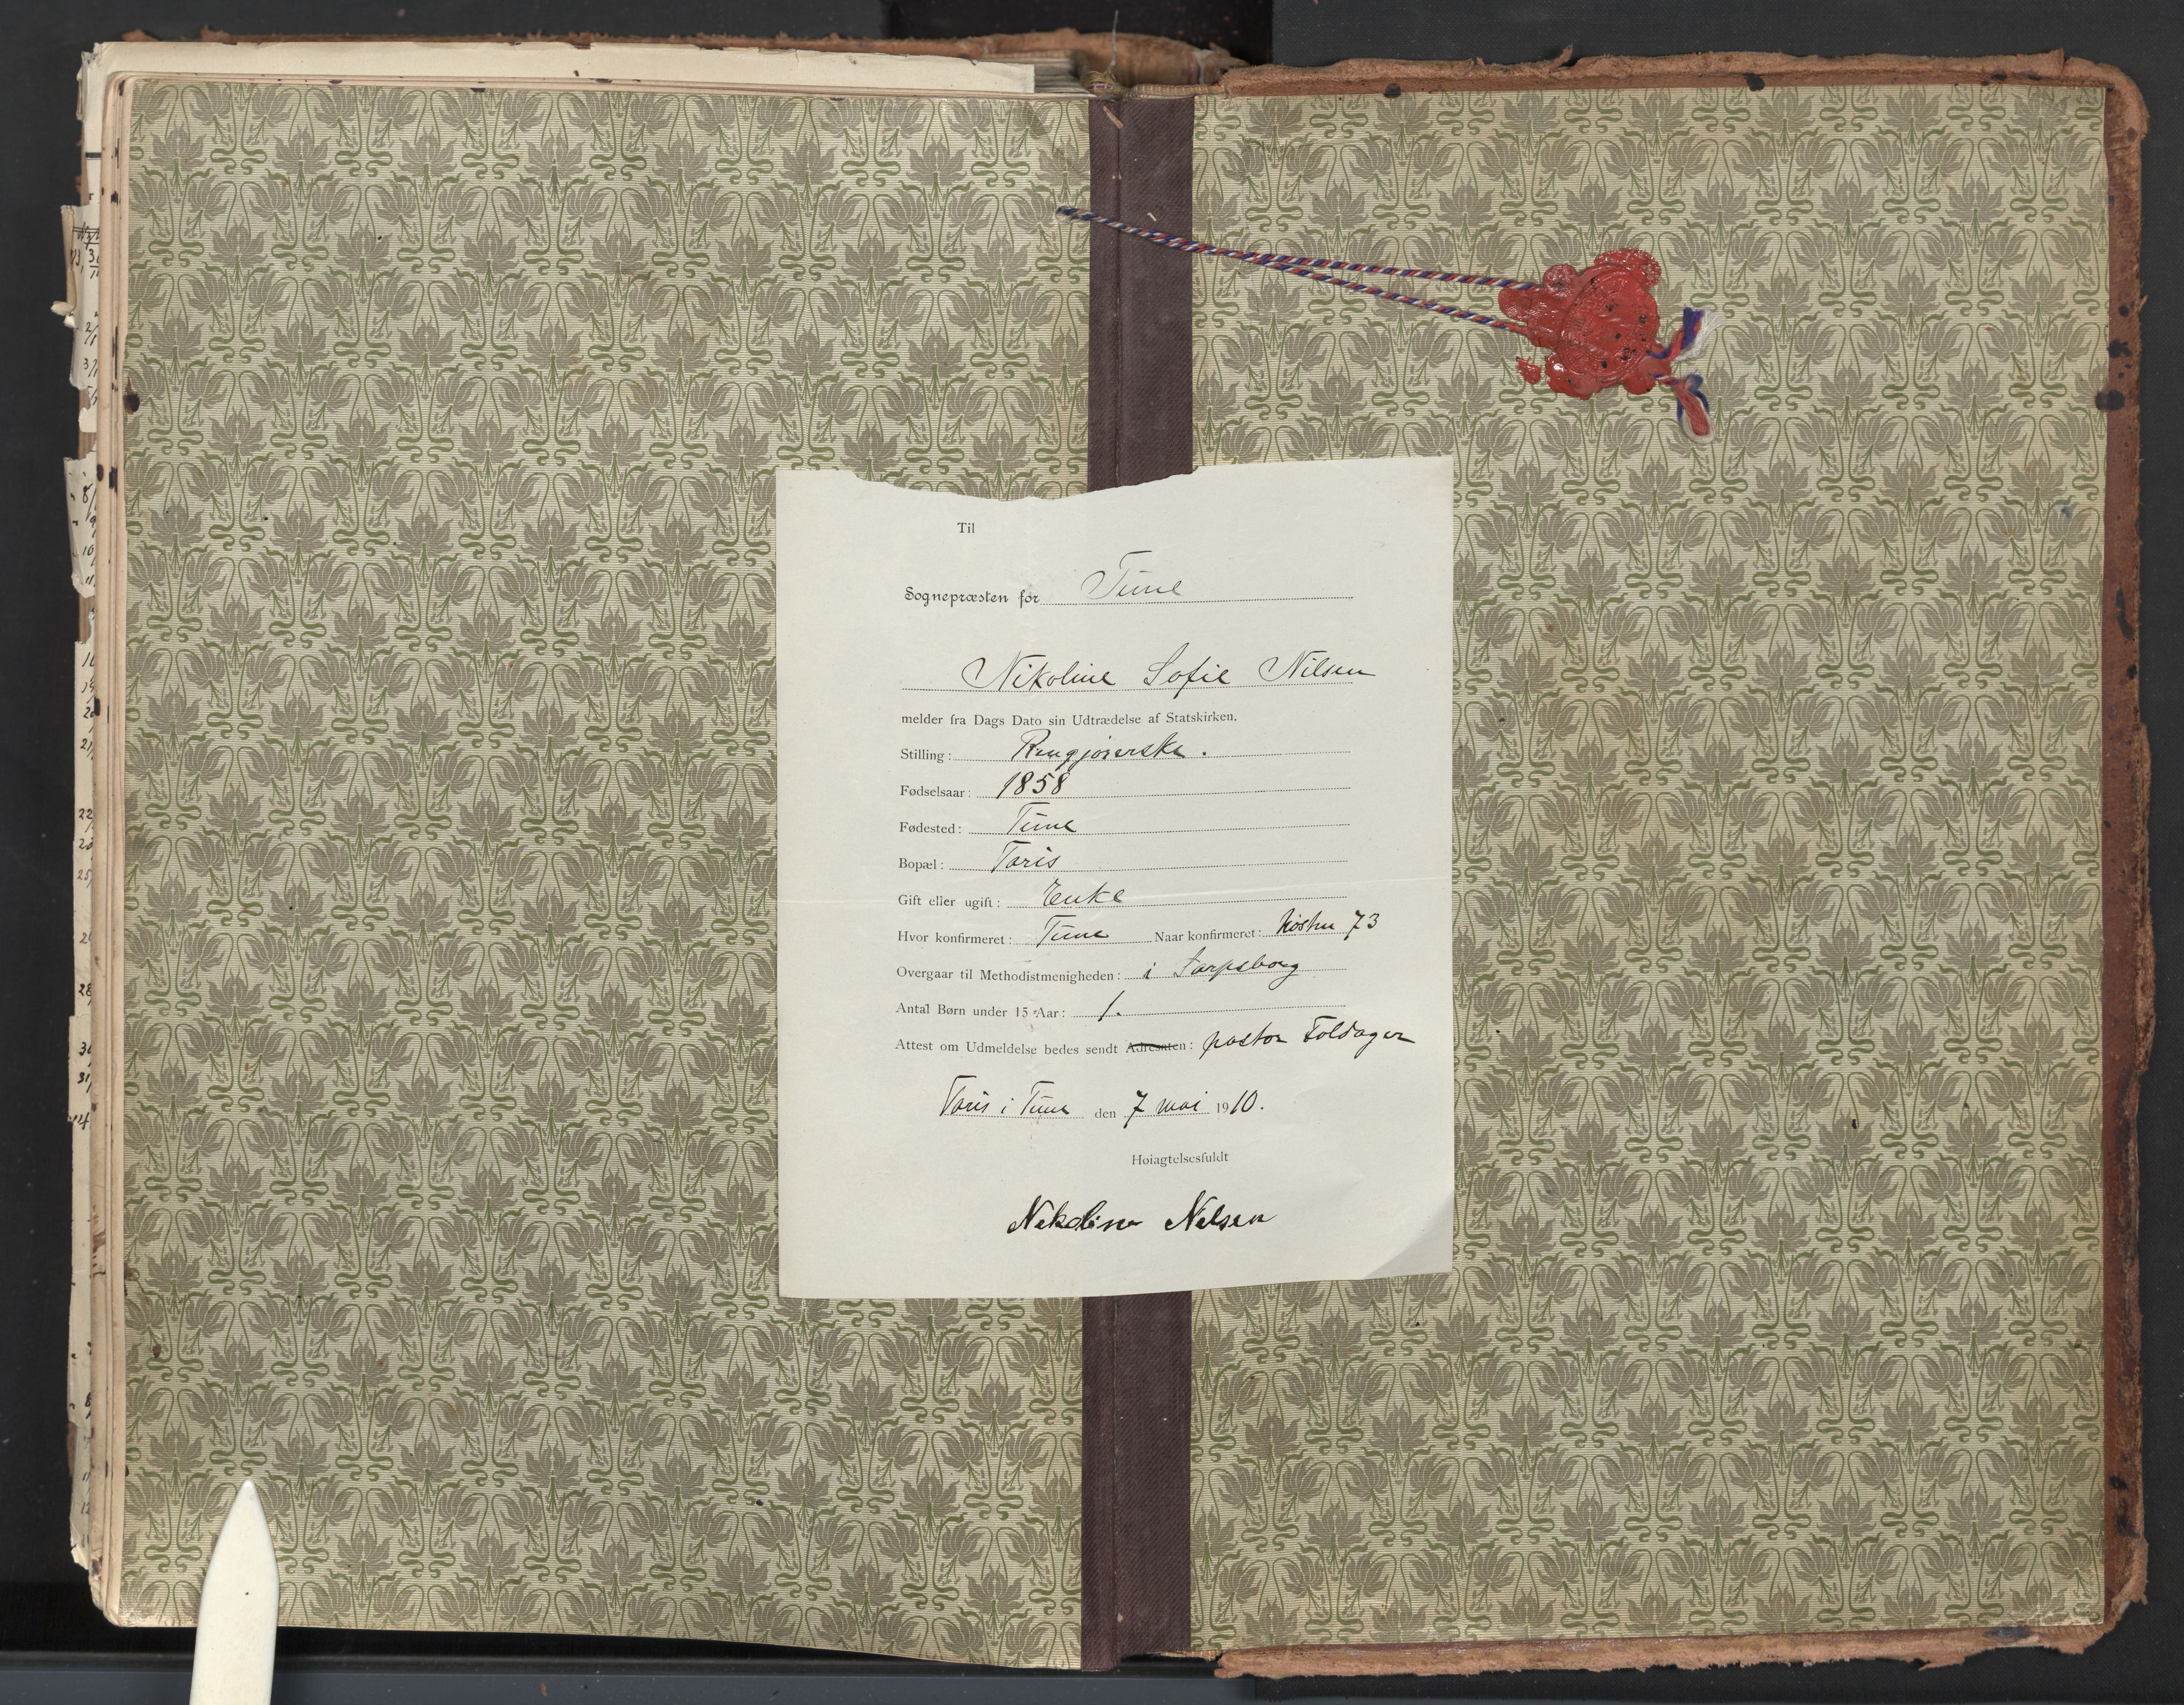 Til
Sognepræsten for Tune
Nikoline Sofie Nilsen
melder fra Dags Dato sin Udtrædelse af Statskirken.
Stilling: Rengjørerske.
Fødselsaar: 1858
Fødested: Tune
Bopæl: Taris
Gift eller ugift: Enke
Hvor konfirmeret: Tune Naar konfirmeret: Høsten 73
Overgaar til Methodistmenigheden: i Sarpsborg
Antal Børn under 15 Aar: 1.
Attest om Udmeldelse bedes sendt Adresaten: pastor Foldager
Taris i Tune den 7 mai 1910.
Høiagtelsesfuldt
Nikoline Nelsen